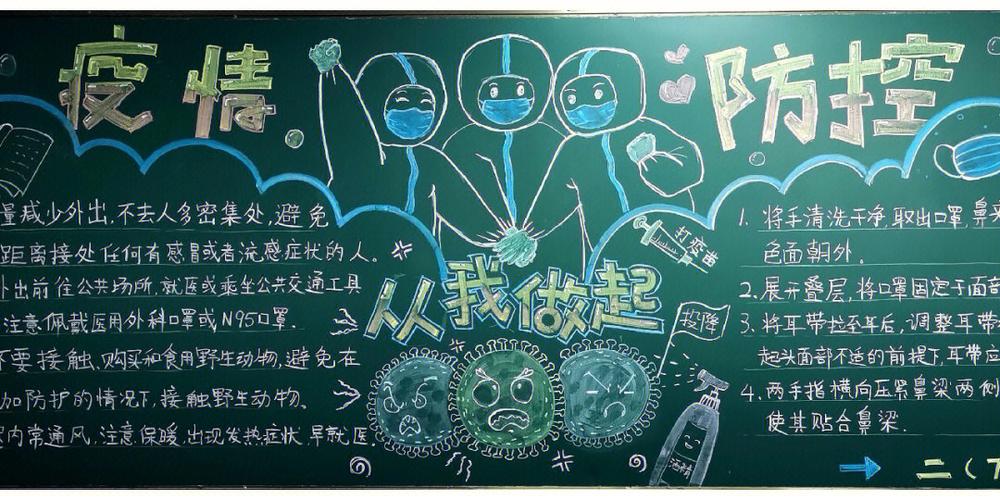 疫情
防控
量减少外出,不去人多密集处,避免
距离接处任何有感冒或者流感症状的人。
外出前往公共场所,就医或乘坐公共交通工具
注意佩戴医用外科口罩或N95口罩.
不要接触、购买和食用野生动物,避免在
加防护的情况下,接触野生动物。
室内常通风,注意保暖,出现发热症状,早就医.
打疫苗
从我做起
投降
酒精
1. 将手清洗干净,取出口罩,鼻夹
色面朝外.
2.展开叠层,将口罩固定于面部
3.将耳带拉至耳后,调整耳带
起头面部不适的前提下,耳带应
4.两手指横向压罩鼻梁两侧
使其贴合鼻梁.
二(